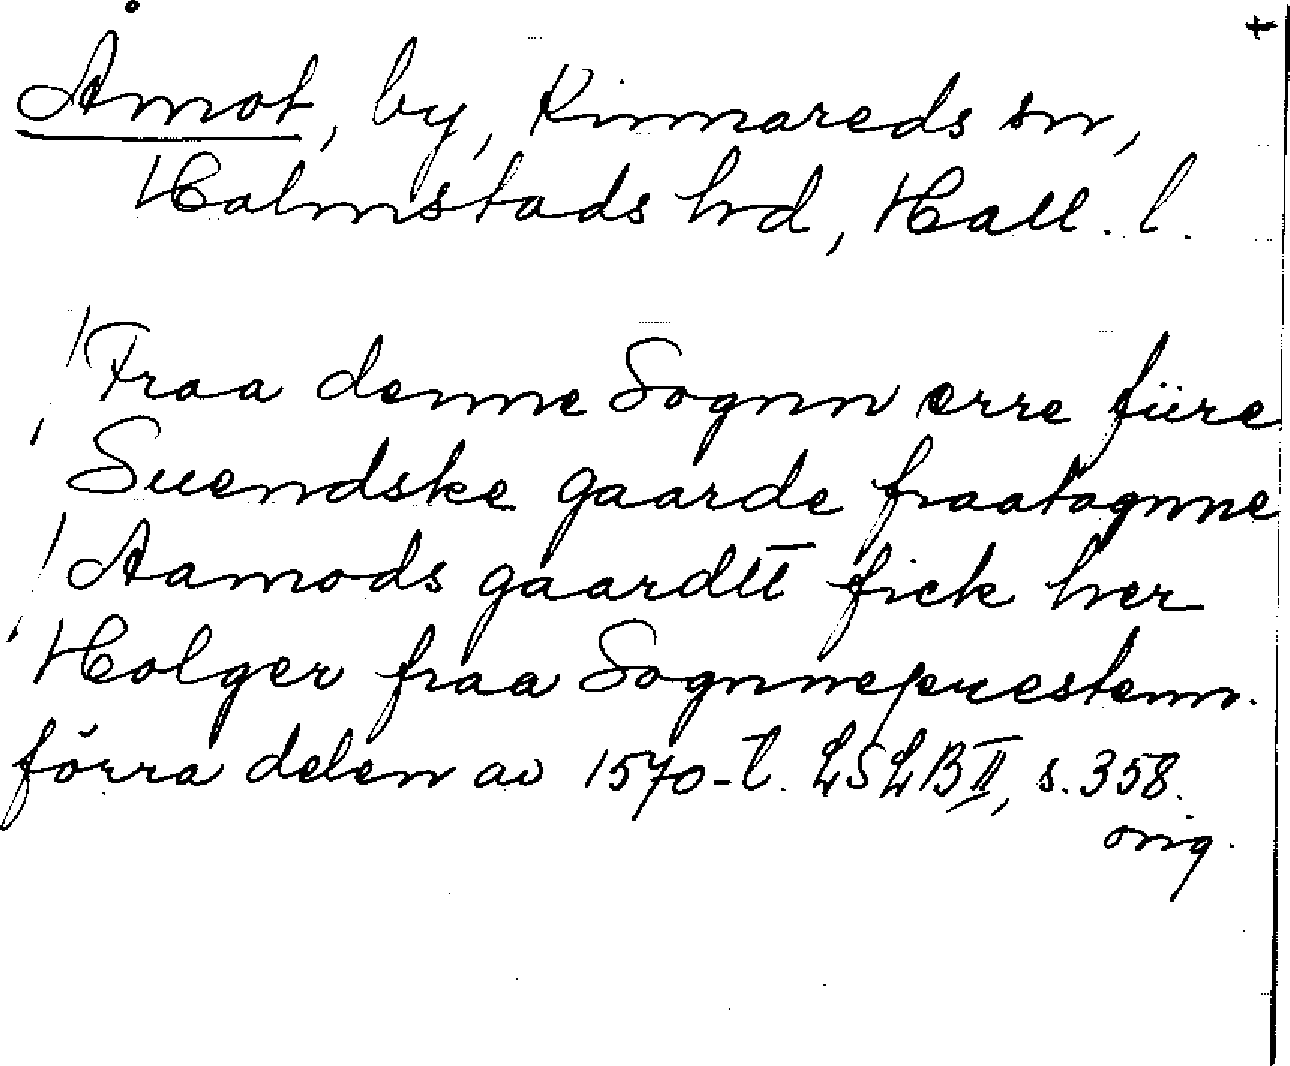 +
Åmot, by, Kinnareds sn,
Halmstads hrd, Hall. l.
Fraa denne Sognn erre füre
Suendske gaarde fraatagnne
Aamods gaardtt fick her
Holger fraa Sognneprestenn.
förra delen av 1570-t. LSLB II, s. 358.
orig.